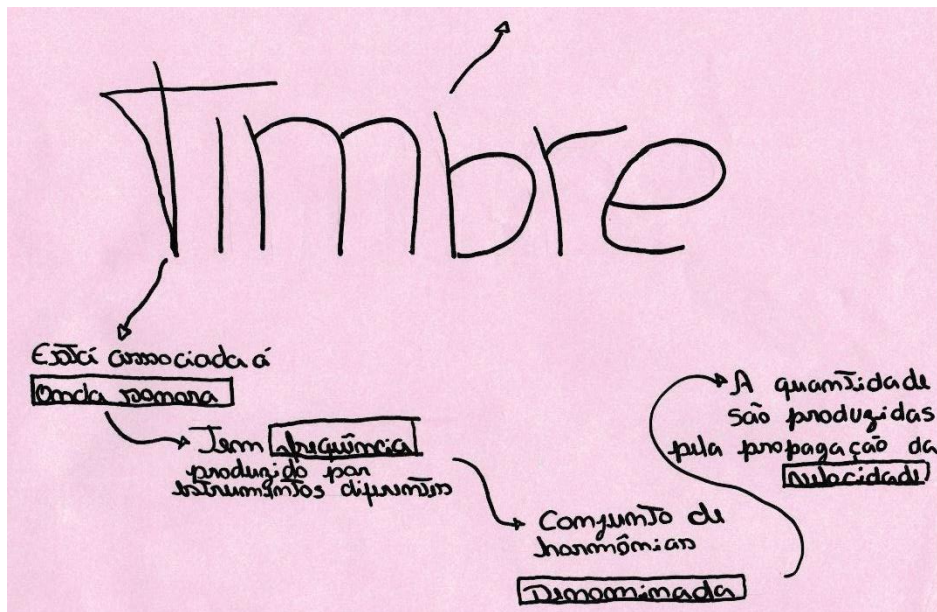 Timbre
Está associada á
onda sonora
Tem frequência
produzido por
estrumentos diferentes
Conjunto de
harmônias
Denominada
A quantidade
são produzidas
pela propagação da
velocidade